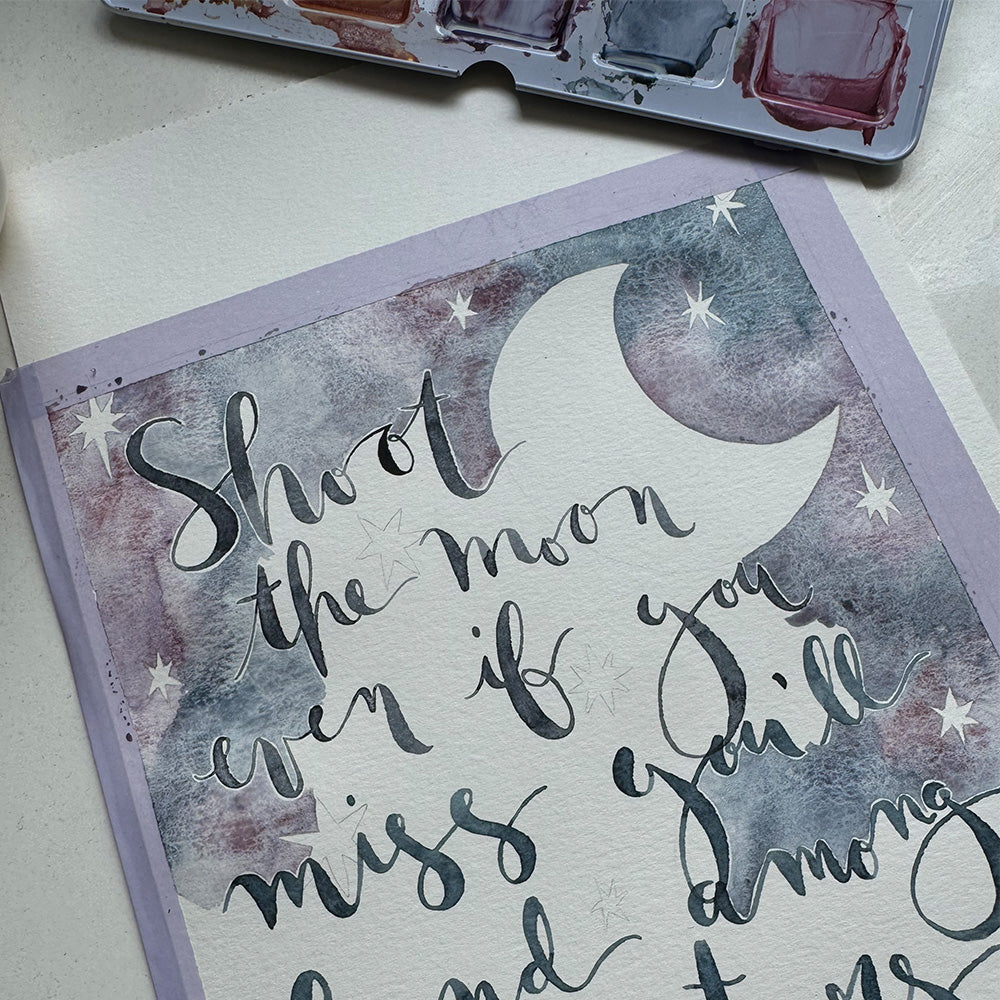 Shoot
the moon
even if you
miss you'll
among